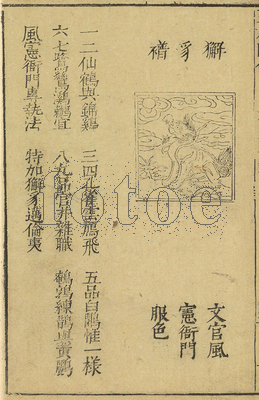 獬豸補
文官風
憲衙門
服色
一二仙鶴與錦雞 三四孔雀雲鴈飛 五品白鷳惟一樣
六七鷺鷥鸂鶒宜 八九品官并雜職 鵪鶉練鵲與黃鸝
風憲衙門專執法 特加獬豸邁倫夷
fotoe